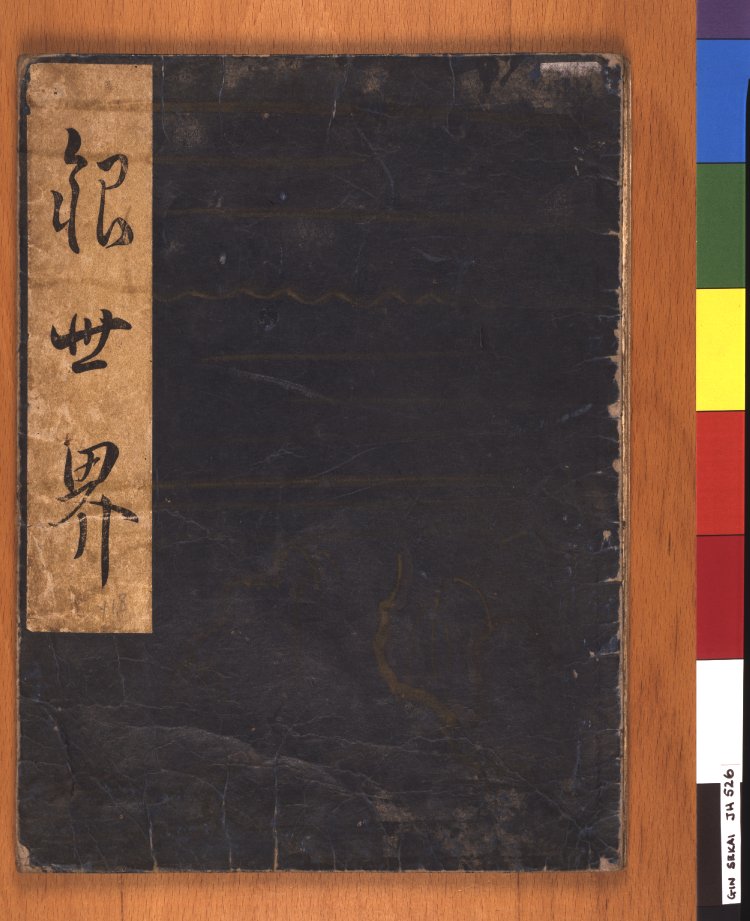 銀世界
GIN SEKAI JH 526